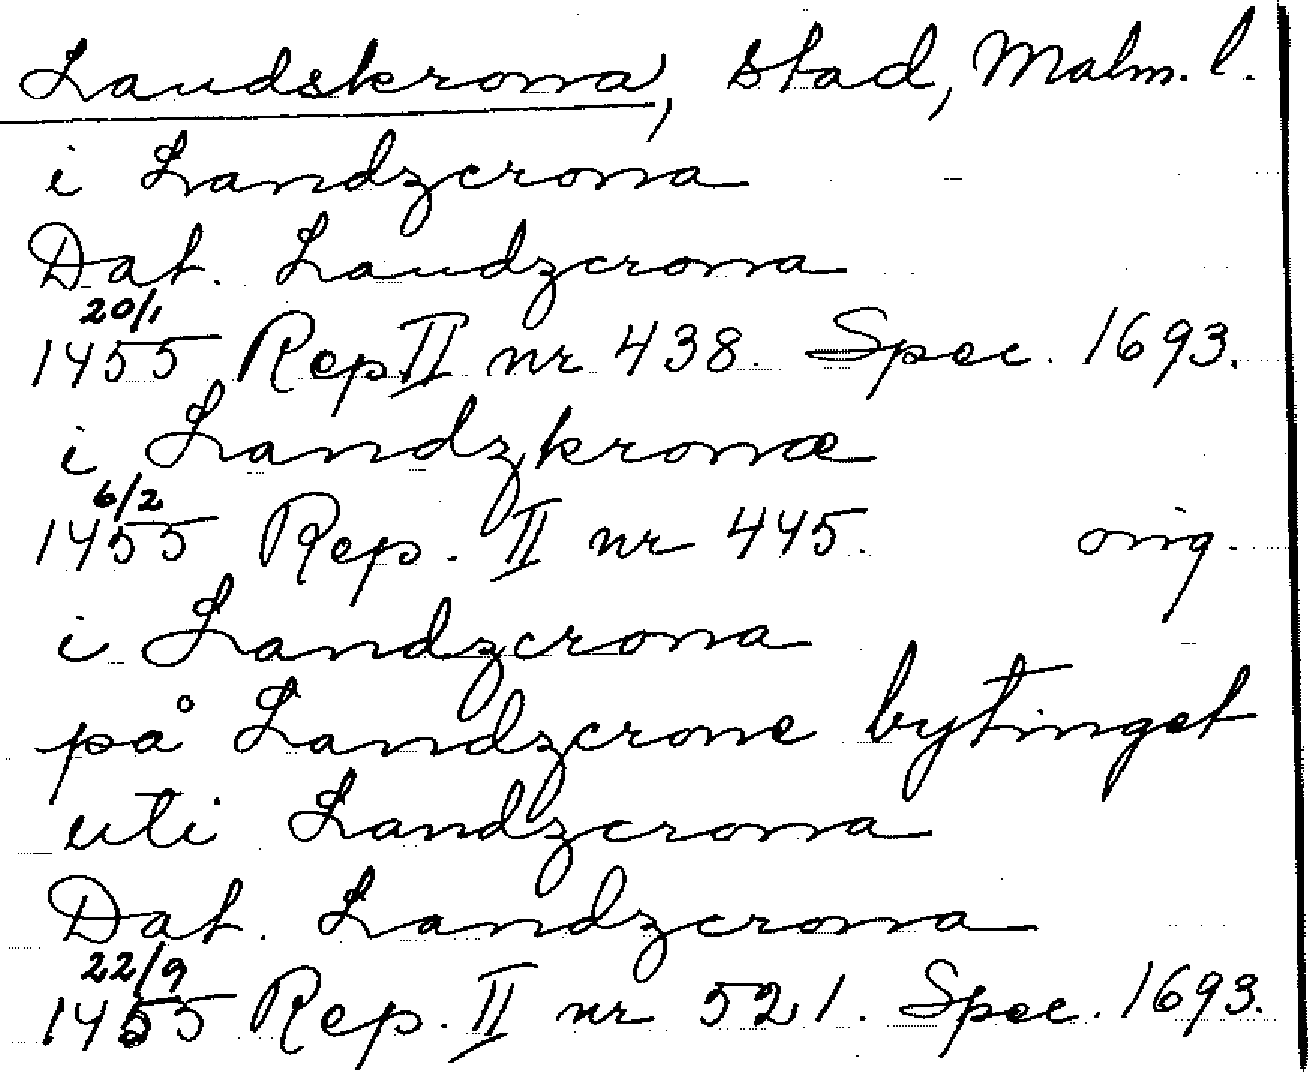 Landskrona, stad, Malm. l.
i Landzcrona
Dat. Landzcrona
20/1
1455 Rep II nr 438. Spec. 1693.
i Landzkronæ
6/2
1455 Rep. II nr 445. orig.
i Landzcrona
på Landzcrone bytinget
uti Landzcrona
Dat. Landzcrona
22/9
1455 Rep. II nr 521. Spec. 1693.